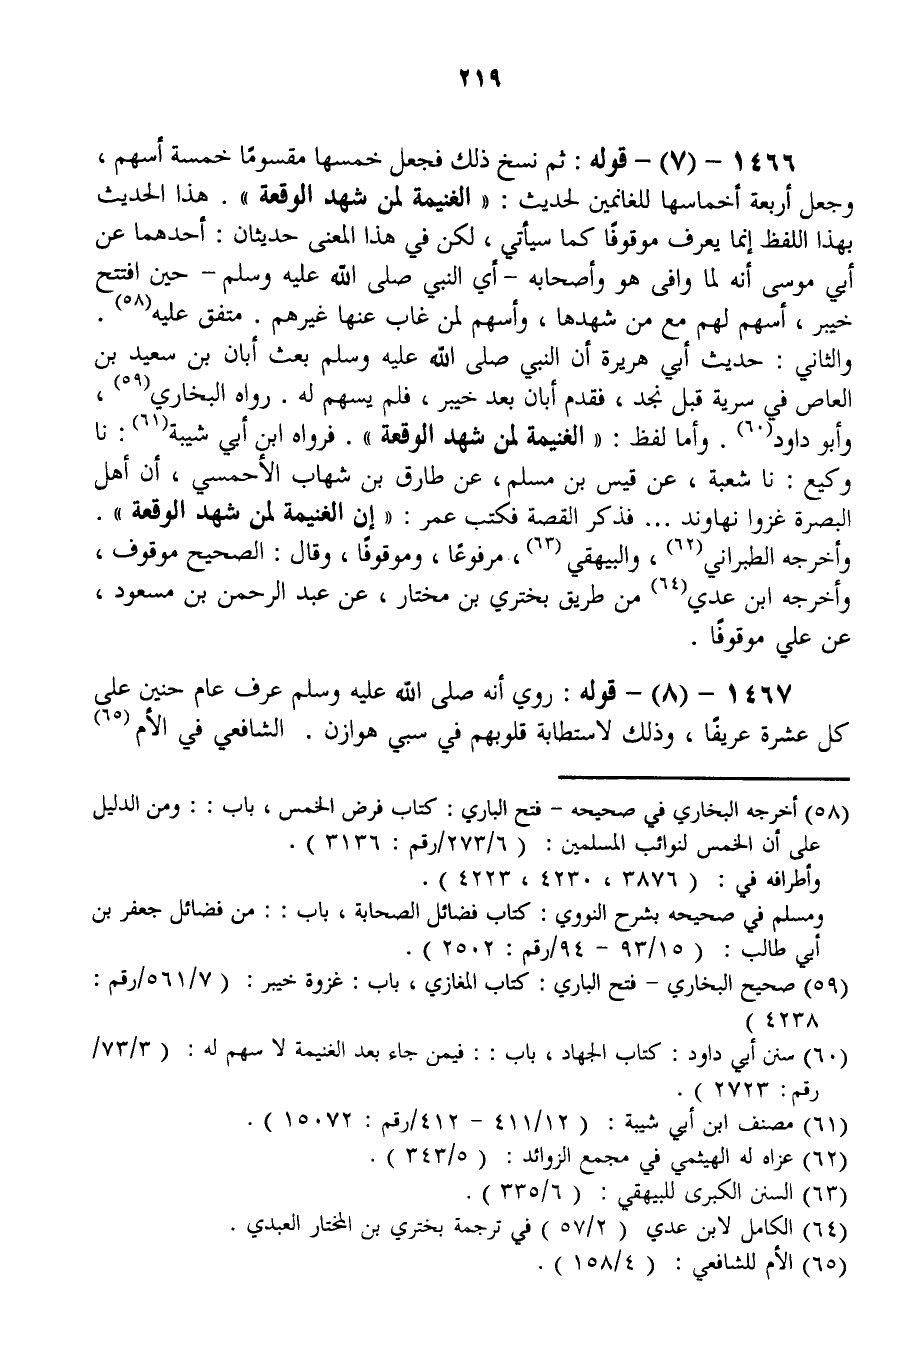 ٢١٩
١٤٦٦ – (٧) – قوله : ثم نسخ ذلك فجعل خمسها مقسومًا خمسة أسهم ،
وجعل أربعة أخماسها للغانمين لحديث : « الغنيمة لمن شهد الوقعة » . هذا الحديث
بهذا اللفظ إنما يعرف موقوفًا كما سيأتي ، لكن في هذا المعنى حديثان : أحدهما عن
أبي موسى أنه لما وافى هو وأصحابه – أي النبي صلى الله عليه وسلم – حين افتتح
خيبر ، أسهم لهم مع من شهدها ، وأسهم لمن غاب عنها غيرهم . متفق عليه(٥٨) .
والثاني : حديث أبي هريرة أن النبي صلى الله عليه وسلم بعث أبان بن سعيد بن
العاص في سرية قبل نجد ، فقدم أبان بعد خيبر ، فلم يسهم له . رواه البخاري(٥٩) ،
وأبو داود(٦٠) . وأما لفظ : « الغنيمة لمن شهد الوقعة » . فرواه ابن أبي شيبة(٦١) : نا
وكيع : نا شعبة ، عن قيس بن مسلم ، عن طارق بن شهاب الأحمسي ، أن أهل
البصرة غزوا نهاوند ... فذكر القصة فكتب عمر : « إن الغنيمة لمن شهد الوقعة » .
وأخرجه الطبراني(٦٢) ، والبيهقي(٦٣) ، مرفوعًا ، وموقوفًا ، وقال : الصحيح موقوف ،
وأخرجه ابن عدي(٦٤) من طريق بختري بن مختار ، عن عبد الرحمن بن مسعود ،
عن علي موقوفًا .
١٤٦٧ – (٨) – قوله : روي أنه صلى الله عليه وسلم عرف عام حنين على
كل عشرة عريفًا ، وذلك لاستطابة قلوبهم في سبي هوازن . الشافعي في الأم(٦٥)
(٥٨) أخرجه البخاري في صحيحه – فتح الباري : كتاب فرض الخمس ، باب : : ومن الدليل
على أن الخمس لنوائب المسلمين : ( ٢٧٣/٦/رقم : ٣١٣٦ ) .
وأطرافه في : ( ٣٨٧٦ ، ٤٢٣٠ ، ٤٢٢٣ ) .
ومسلم في صحيحه بشرح النووي : كتاب فضائل الصحابة ، باب : : من فضائل جعفر بن
أبي طالب : ( ٩٣/١٥ – ٩٤/رقم : ٢٥٠٢ ) .
(٥٩) صحيح البخاري – فتح الباري : كتاب المغازي ، باب : غزوة خيبر : ( ٥٦١/٧/رقم :
٤٢٣٨ )
(٦٠) سنن أبي داود : كتاب الجهاد ، باب : : فيمن جاء بعد الغنيمة لا سهم له : ( ٧٣/٣/
رقم : ٢٧٢٣ ) .
(٦١) مصنف ابن أبي شيبة : ( ٤١١/١٢ – ٤١٢/رقم : ١٥٠٧٢ ) .
(٦٢) عزاه له الهيثمي في مجمع الزوائد : ( ٣٤٣/٥ ) .
(٦٣) السنن الكبرى للبيهقي : ( ٣٣٥/٦ ) .
(٦٤) الكامل لابن عدي ( ٥٧/٢ ) في ترجمة بختري بن المختار العبدي .
(٦٥) الأم للشافعي : ( ١٥٨/٤ ) .